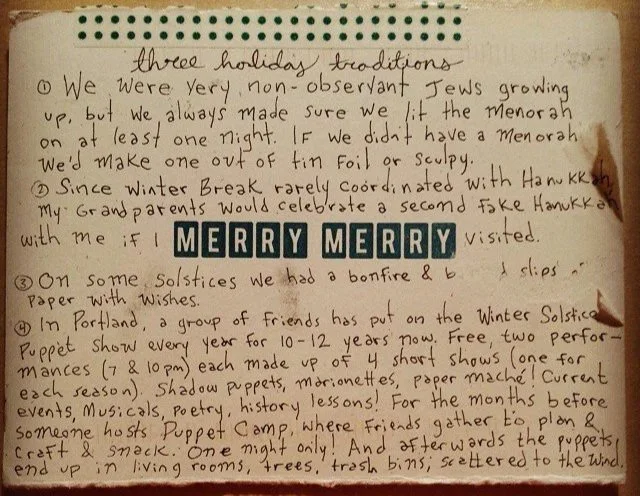 three holiday traditions
① We were very non-observant Jews growing
up, but we always made sure we lit the Menorah
on at least one night. IF we didn't have a Menorah
we'd make one out of tin foil or Sculpy.
② Since Winter Break rarely coördinated with Hanukkah,
my Grandparents would celebrate a second fake Hanukkah
with me if I MERRY MERRY visited.
③ On some Solstices we had a bonfire & b slips
paper with wishes.
④ In Portland, a group of friends has put on the Winter Solstice
Puppet Show every year for 10-12 years now. Free, two perfor-
mances (7 & 10pm) each made up of 4 short shows (one for
each season). Shadow puppets, marionettes, paper maché! Current
events, Musicals, poetry, history lessons! For the months before
someone hosts Puppet Camp, where friends gather to plan &
craft & snack. One night only! And afterwards the puppets
end up in living rooms, trees, trash bins; scattered to the wind.